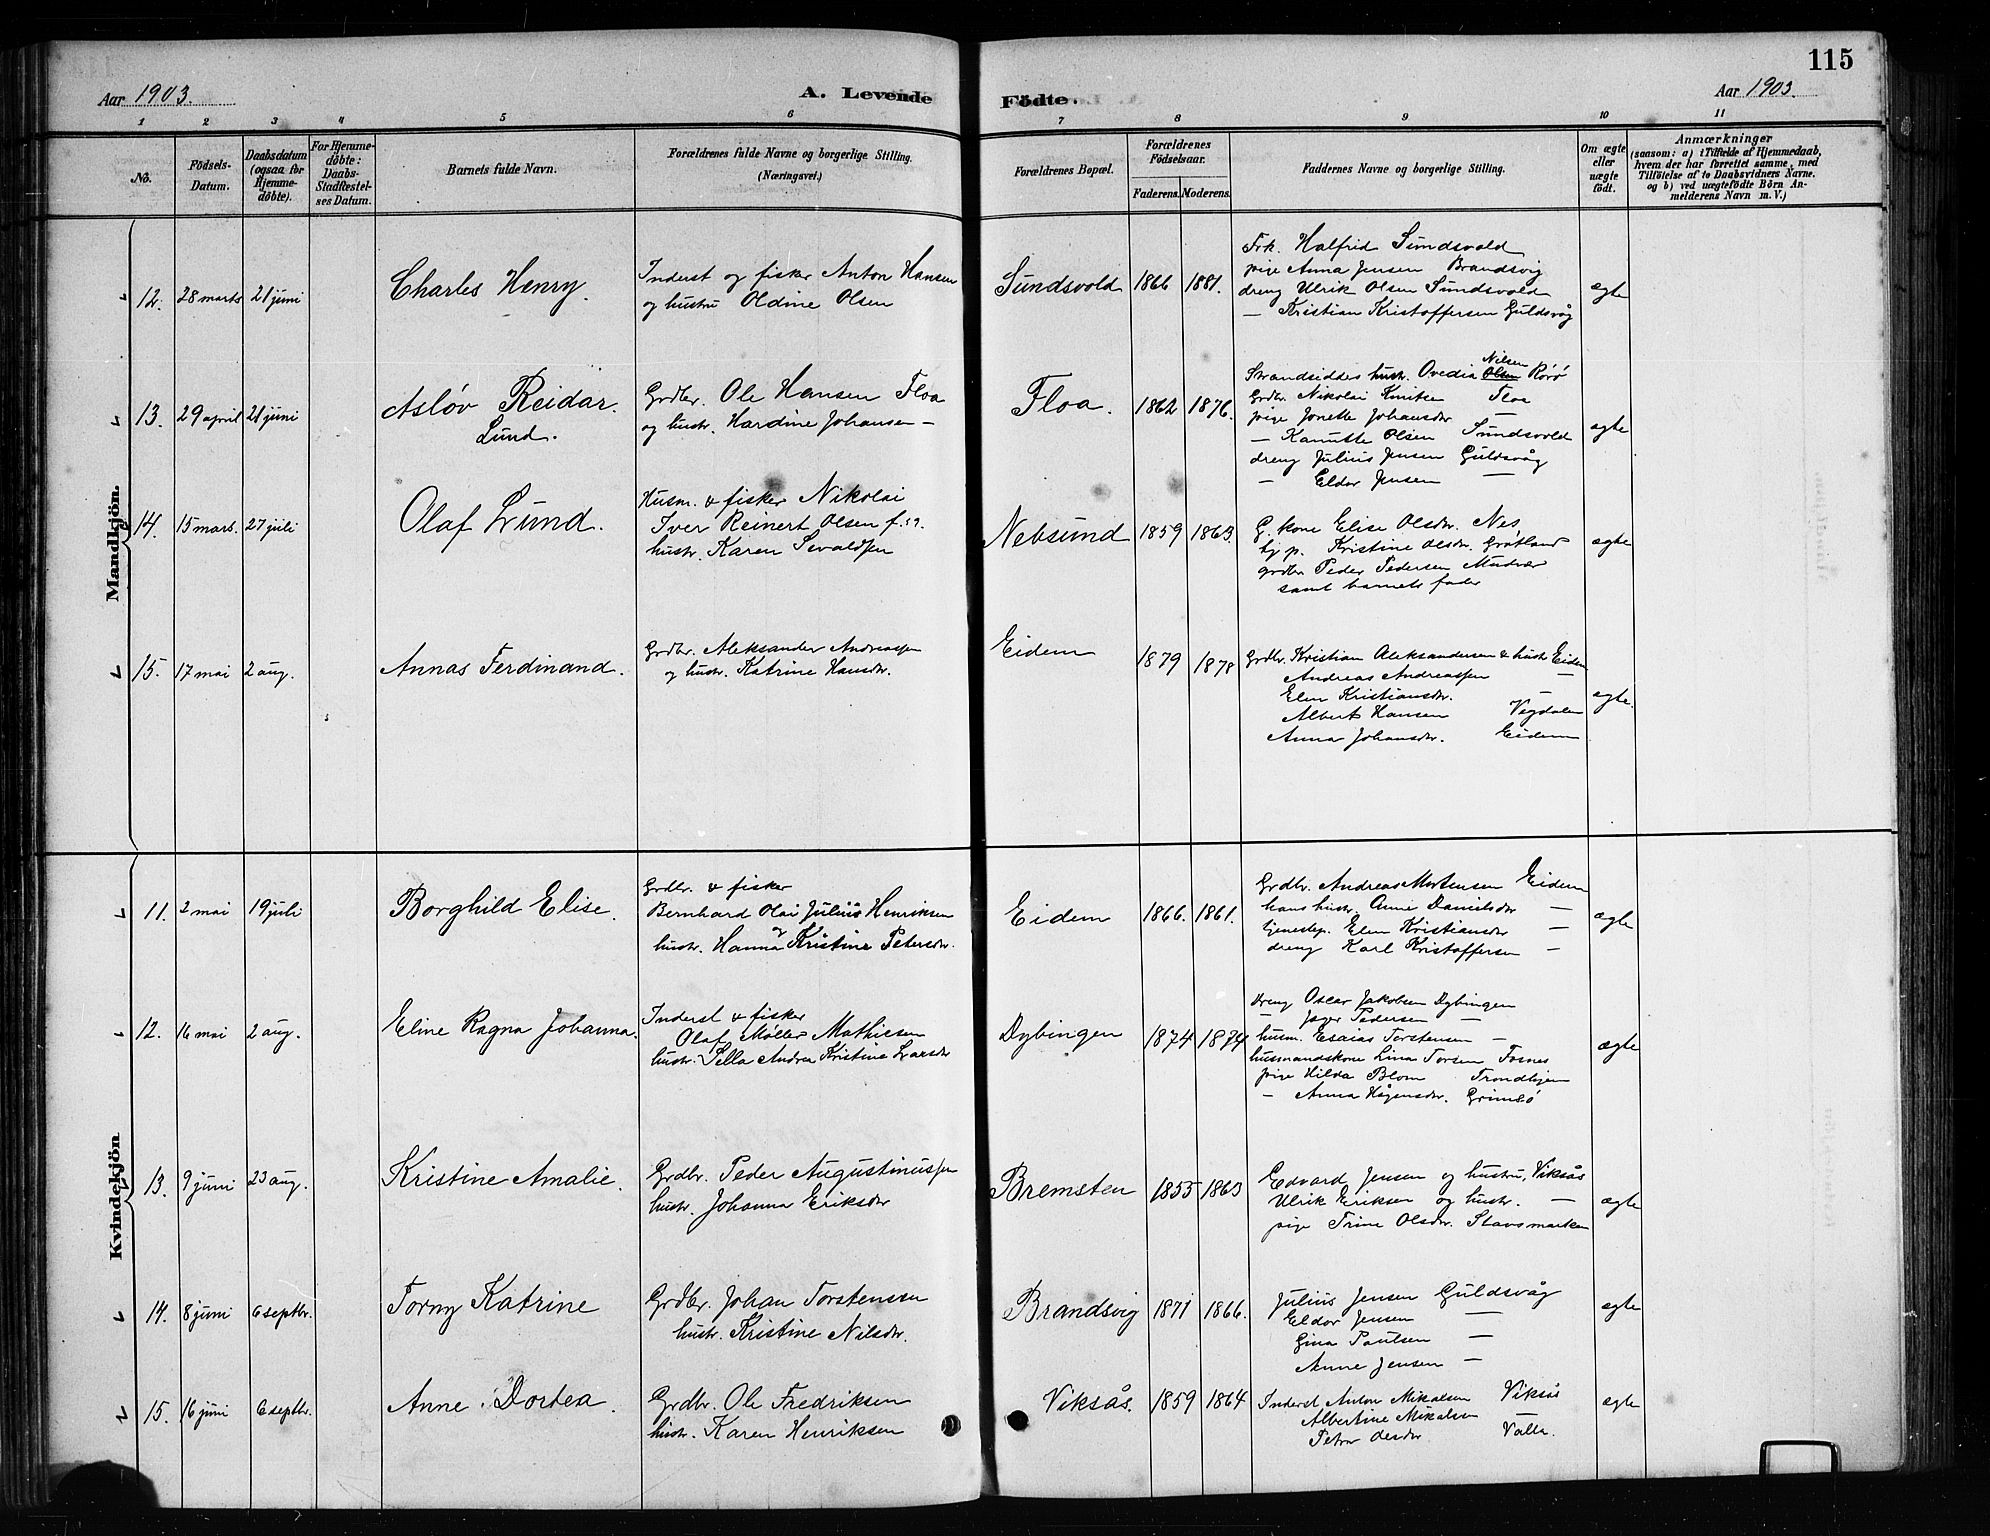 115
Aar 1903.
A. Levende
Födte.
Aar 1903.
1 2 3 4 5 6 7 8 9 10 11
No.
Födsels-Datum.
Daabsdatum (ogsaa for Hjemme-döbte).
For Hjemme-döbte: Daabs-Stadfestel-ses Datum.
Barnets fulde Navn.
Forældrenes fulde Navne og borgerlige Stilling.
(Næringsvei.)
Forældrenes Bopæl.
Forældrenes Födselsaar.
Faderens. Moderens.
Faddernes Navne og borgerlige Stilling.
Om ægte eller uægte födt.
Anmærkninger
(saasom: a) i Tilfælde af Hjemmedaab,
hvem der har forrettet samme, med
Tilföielse af to Daabsvidners Navne.
og b) ved uægtefödte Börn An-
melderens Navn m. V.)
Mandkjön.
12. 28 marts 21 juni
Charles Henry.
Inderst og fisker Anton Hansen
og hustru Oldine Olsen
Sundsvold 1866 1881.
Frk. Halfrid Sundsvold
pige Anna Jensen Brandsvig
dreng Ulrik Olsen Sundsvold
— Kristian Kristoffersen Guldsvåg
ægte
13. 29 april 21 juni
Asløv Reidar.
Lund.
Grdbr. Ole Hansen Floa
og hustr. Hardine Johansen —
Floa. 1862 1876.
Nilsen
Strandsidders hustr. Ovedia Olsen Rørø
Grdbr. Nikolai Knutsen Floa
pige Jonette Johansdtr —
— Kanutte Olsen Sundsvold
dreng Julius Jensen Guldsvåg
— Eldor Jensen —
ægte
14. 15 mars. 27 juli
Olaf Lund.
Husm. & fisker Nikolai
Iver Reinert Olsen f. 59.
hustr. Karen Sevaldsen
Nebsund 1859 1863.
G. kone Elise Olsdtr. Nes,
tj p. Kristine Olsdr. Grøtland
grdbr Peder Pedersen Mudvær
samt barnets fader
ægte
15. 17 mai 2 aug.
Annas Ferdinand.
Grdbr. Aleksander Andreassen
og hustr. Katrine Hansdr.
Eidem 1879 1878
Grdbr. Kristian Aleksandersen & hustr Eidem
Andreas Andreassen —
Elen Kristiansdr. —
Albert Hansen Vegdalen
Anna Johansdr. Eidem
ægte.
Kvindekjön
11. 2 mai 19 juli
Borghild Elise.
Grdbr. & fisker
Bernhard Olai Julius Henriksen
hustr. Hanna Kristine Petersdr.
Eidem 1866. 1861.
Grdbr. Andreas Mortensen Eidem
hans hustr. Anne Danielsdr —
tjenestep. Elen Kristiansdr —
dreng Karl Kristoffersen —
ægte
12. 16 mai 2 aug.
Eline Ragna Johanna.
Inderst & fisker
Olaf Møller Mathiesen
hustr. Sella Andrea Kristine Larsdr
Dybingen 1874 1874
Dreng Oscar Jakobsen Dybingen
— Pedersen —
husm. Esaias Torstensen —
husmandskone Lina Torsen Fosnes
pige Hilda Blom Trondhjem
— Anna Hågensdr. Grimsø
ægte
13. 9 juni 23 aug.
Kristine Amalie.
Grdbr. Peder Augustinussen
hustr. Johanna Eriksdr
Bremsten 1855 1863
Edvard Jensen og hustru, Viksås
Ulrik Eriksen og hustr. —
pige Trine Olsdr. Stavsmarken
ægte
14. 8 juni 6 septbr.
Torny Katrine
Grdbr. Johan Torstensen
hustr. Kristine Nilsdr.
Brandsvig 1871 1866.
Julius Jensen Guldsvåg
Eldor Jensen —
Gina Paulsen —
Anne Jensen —
ægte
15. 16 juni 6 septbr.
Anne Dortea.
Grdbr. Ole Fredriksen
hustr. Karen Henriksen
Viksås. 1859 1864
Inderst Anton Mikalsen Viksås
Albertine Mikalsen
Petra Valla.
ægte